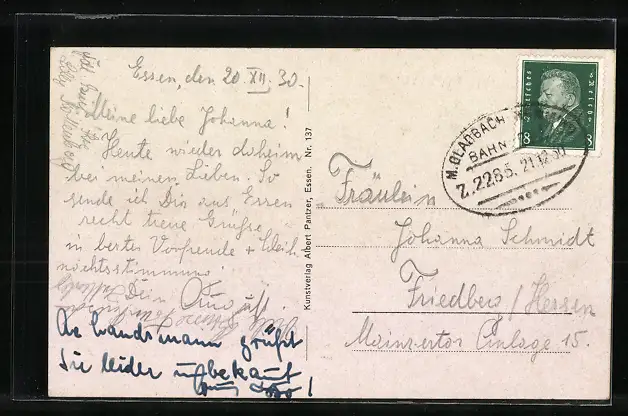 Essen, den 20. XII. 30.
Meine liebe Johanna!
Heute wieder daheim
bei meinen Lieben. So
sende ich Dir aus Essen
recht treue Grüße
in bester Vorfreude + Weih
nachtsstimmung!
Dein
Als Landsmann grüßt
Sie leider unbekannt
Kunstverlag Albert Pantzer, Essen. Nr. 137
Deutsches Reich
8 8
M. GLADBACH
BAHN
Z. 2285. 21.12.30
Fräulein
Johanna Schmidt
Friedberg / Hessen
Mainzertor Anlage 15.